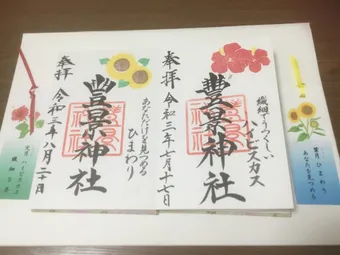 繊細でうつくしい
ハイビスカス
豐景神社
奉拝 令和三年七月十七日
あなただけを見つめる
ひまわり
豐景神社
奉拝
令和三年八月二十日
葉月 ひまわり
あなたを見つめる
ハイビスカス
繊細な美